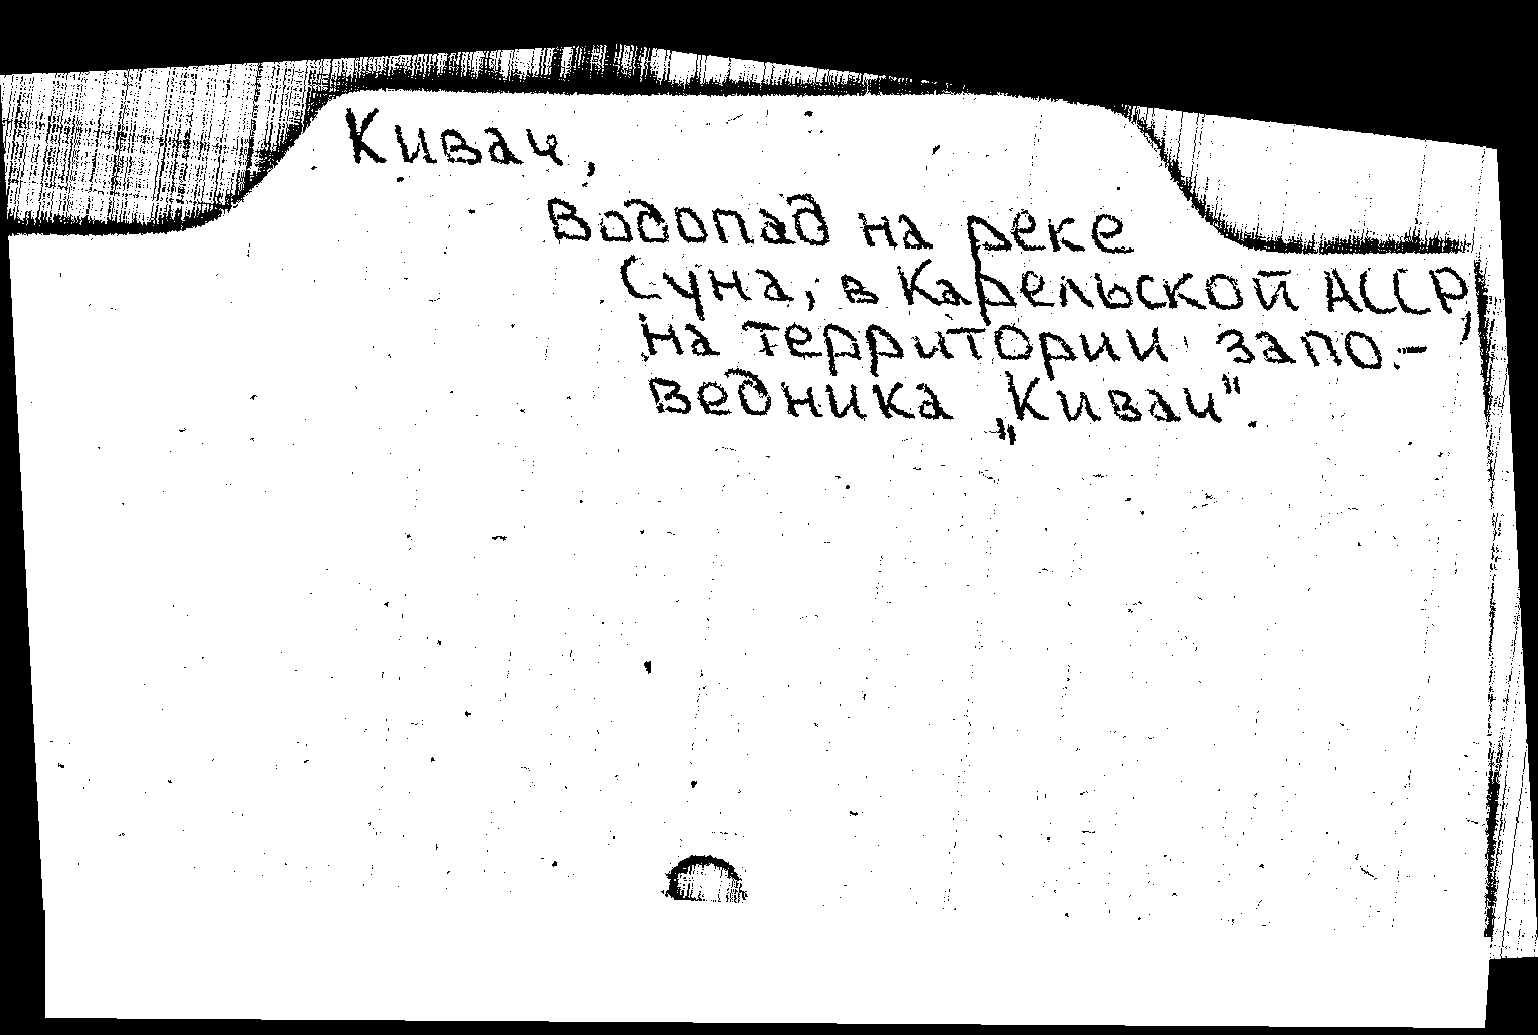 Кивач,
Водопад на реке
Суна, в Карельской АССР,
на территории запо-
ведника „Кивач".